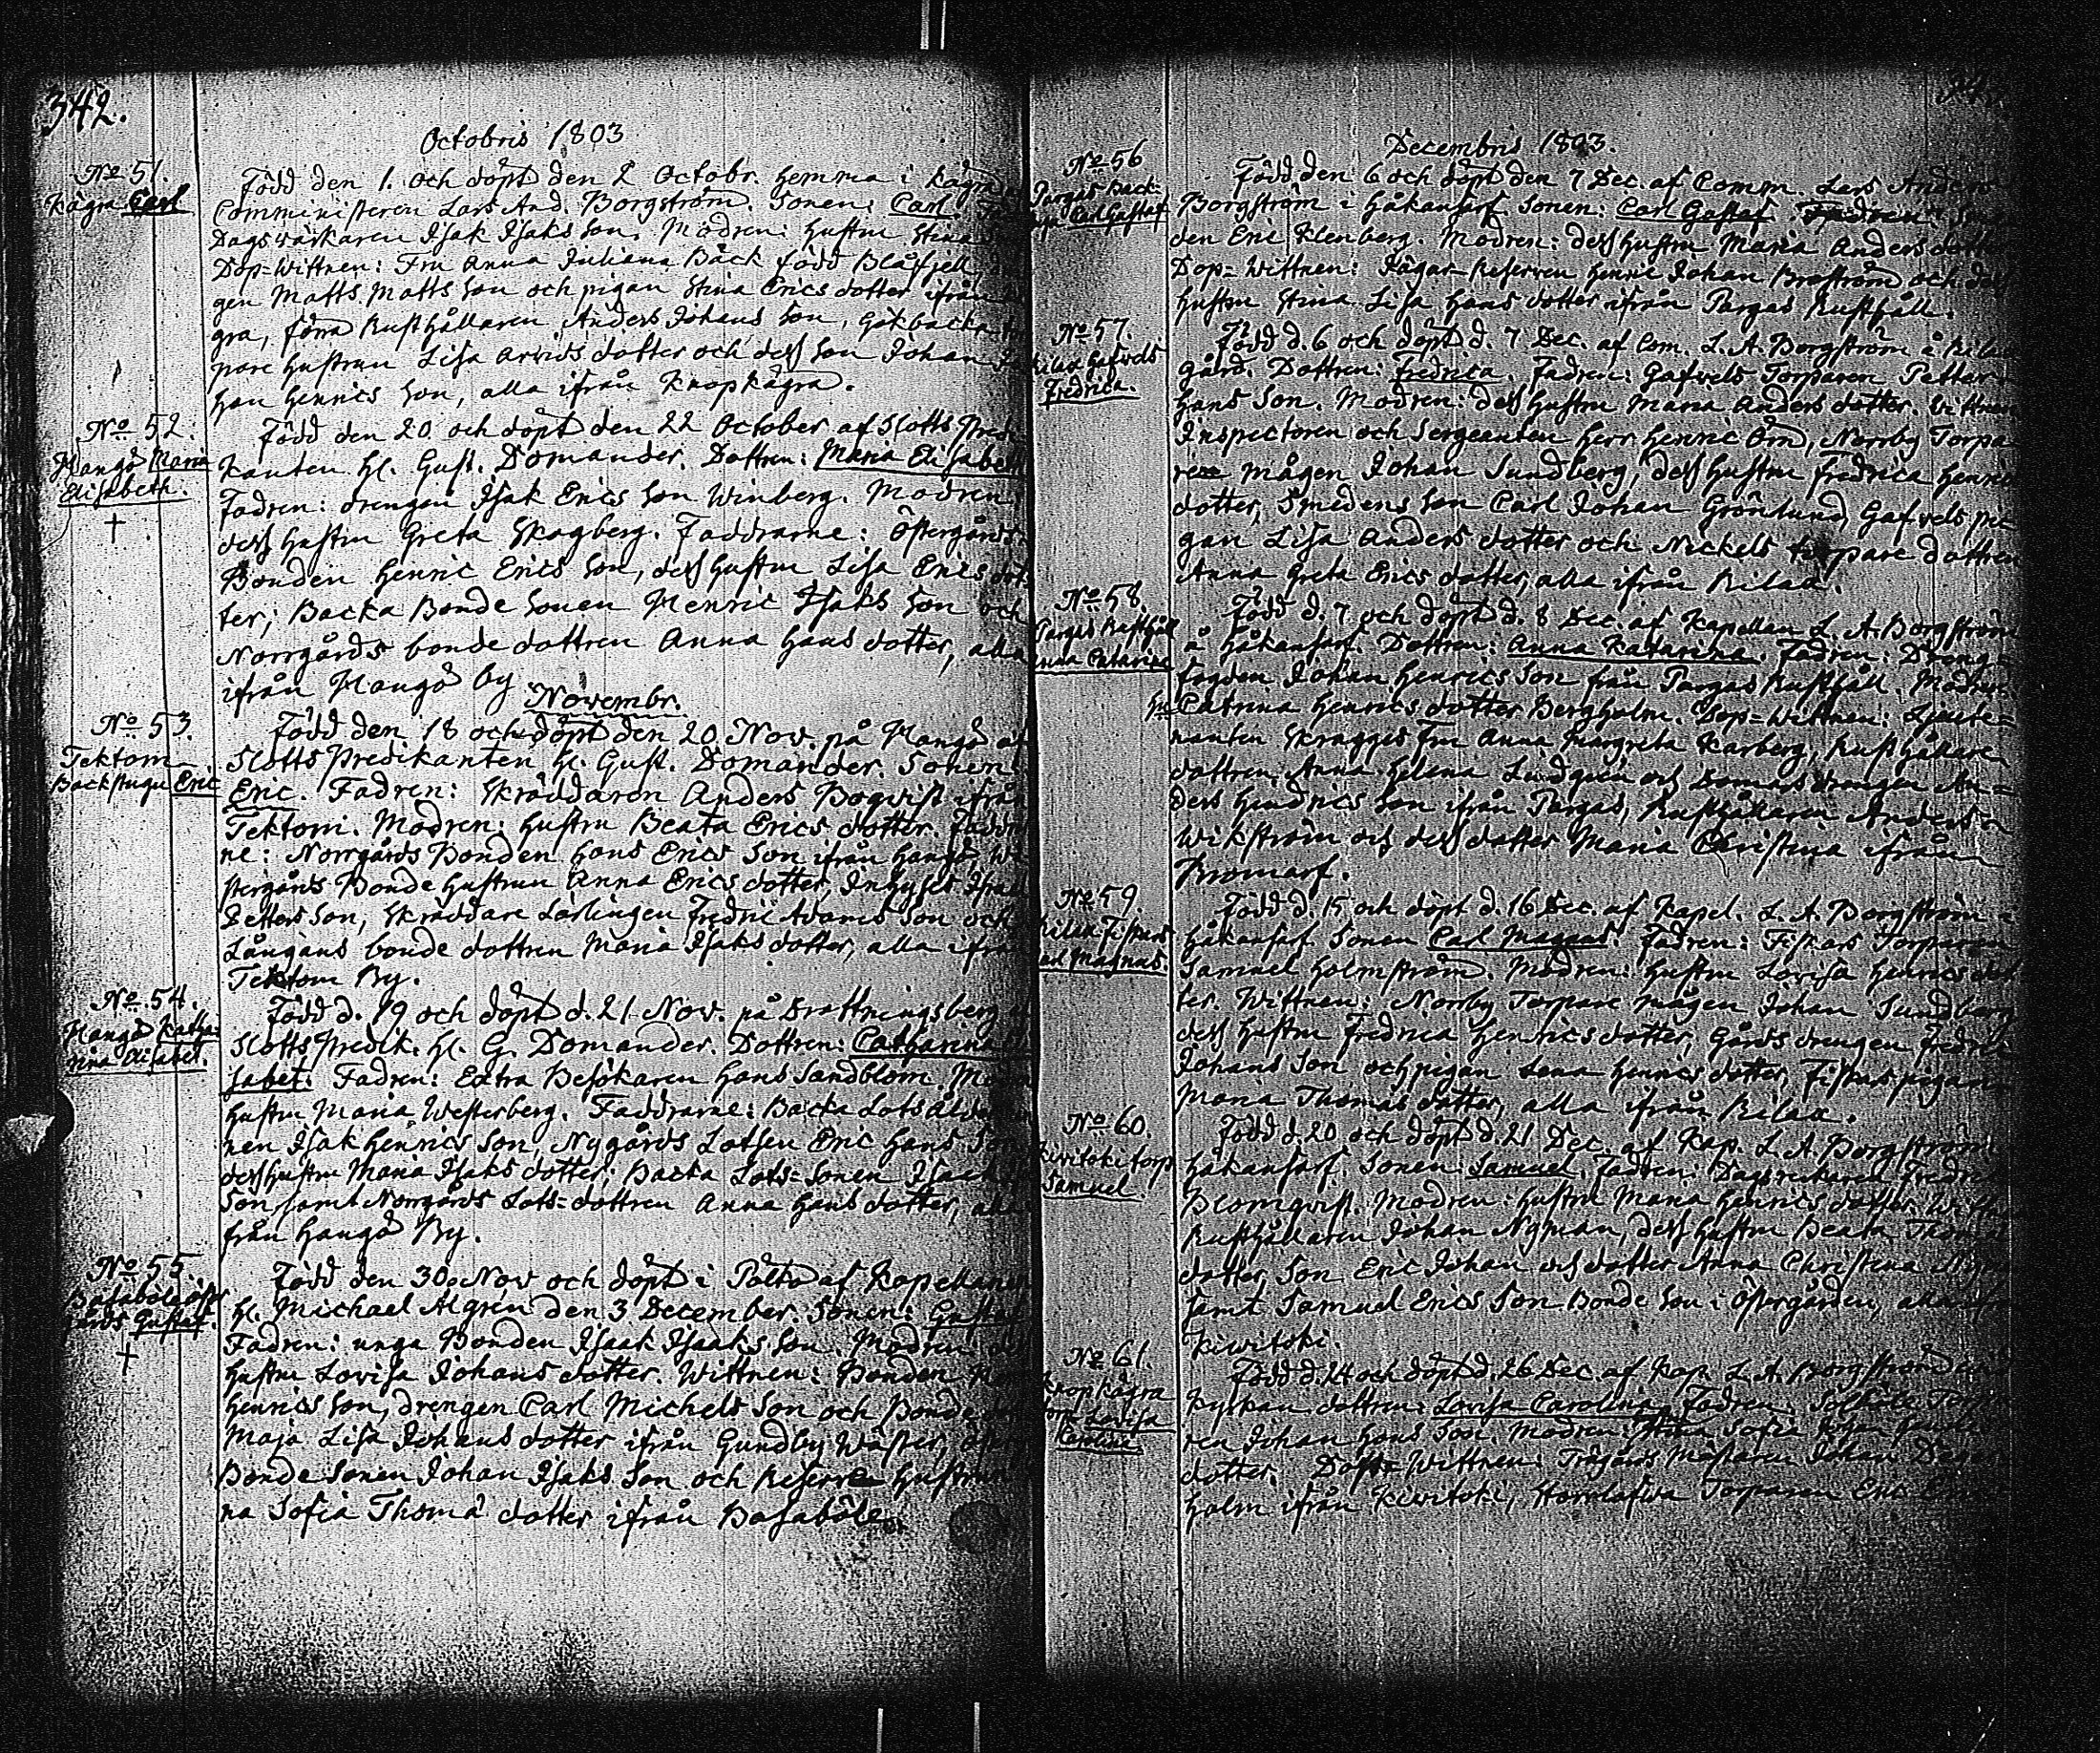 342.
Octobris 1803
No 51.
Kägra Carl
Född den 1. och döpt den 2 Octobr. hemma i Kägra
Comministeren Lars And. Borgström. Sonen: Carl.
Dagswärkaren Isak Isaks Son. Modren: Hustru Stina
Dop-Wittnen: Fru Anna Juliana Bäck född Blåfjell,
gen Matts Matts Son och pigan Stina Erics dotter ifrån
gra, förra Rusthållaren Anders Johans Son, Gökbacka
pare hustrun Lisa Arvids dotter och dess Son Johan
han Henrics Son, alla ifrån Knopkägra.
No 52.
Hangö Maria
Elisabeth.
†
Född den 20 och döpt den 22 October af Slotts Predi
kanten H. Gust. Domander. Dottren: Maria Elisabeth
Fadren: drengen Isak Erics Son Winberg. Modren
dess hustru Greta Skagberg. Faddrarne: Östergårds
Bonden Henric Erics Son, dess hustru Lisa Erics dot
ter, Backa Bonde Sonen Henric Isaks Son och
Norrgårds bonde dottren Anna Hans dotter, alla
ifrån Hangö By
Novembr.
No 53.
Tektom
Backstugu Eric
Född den 18 och döpt den 20 Nov. på Hangö af
Slotts Predikanten H. Gust. Domander. Sonen
Eric. Fadren: Skräddaren Anders Boqvist ifrån
Tektom. Modren: hustru Beata Erics dotter. Faddra
ne: Norrgårds Bonden Hans Erics Son ifrån Hangö, We
stergårds Bonde hustrun Anna Erics dotter, Inhyses
Petters Son, Skräddare Lärlingen Fredric Adams Son och
Långans bonde dottren Maria Isaks dotter, alla ifrån
Tektom By.
No 54.
Hangö Katha-
rina Elisabet.
Född d. 19 och döpt d. 21 Nov. på Drottningsberg
Slotts Predik. H. G. Domander. Dottren: Catharina
sabet. Fadren: Extra Besökaren Hans Sandblom.
hustru Maria Westerberg. Faddrarne: Backa Lots Ålder
nen Isak Henrics Son, Nygårds Lotsen Eric Hans Son
dess hustru Maria Isaks dotter, Backa Lots-Sonen Isaac
Son samt Norrgårds Lots-dottren Anna Hans dotter,
från Hangö By.
No 55.
Basaböle öster
gårds Gustaf.
†
Född den 30 Nov och döpt i Tälto af Kapellanen
H. Michael Algren den 3 December. Sonen: Gustaf
Fadren: unga Bonden Isaak Isaaks Son. Modren
hustru Lovisa Johans dotter. Wittnen: Bonden
Henrics Son, drengen Carl Michels Son och Bonde
Maja Lisa Johans dotter ifrån Gundby Wäster,
Bonde Sonen Johan Isaks Son och Reserve hustrun
na Sofia Thomä dotter ifrån Basaböle.
Decembris 1803.
No 56
Pargas Back-
Carl Gustaf
Född den 6 och döpt den 7 Dec. af Comm. Lars Anders
Borgström i Håkansarf. Sonen: Carl Gustaf. Fadren:
den Eric Klenberg. Modren: dess hustru Maria Anders dotter
Dop-Wittnen: Jägar-Reserven Henric Johan Broström och dess
hustru Stina Lisa Hans dotter ifrån Pargas Rusthåll.
No 57
Rilax Gafvels
Fredrica.
Född d. 6 och döpt d. 7 Dec. af Com. L. A. Borgström å Rilax
gård. Dottren: Fredrica. Fadren: Gafvels Torparen Petter
Hans Son. Modren: dess hustru Maria Anders dotter. Wittnen
Inspectoren och Sergeanten Herr Henric Örn, Norrby Torpa
ren Mågen Johan Sundberg, dess hustru Fredrica Henrics
dotter, Smedens Son Carl Johan Grönlund, Gafvels pi
gan Lisa Anders dotter och Nickels torpare dottren
Anna Greta Erics dotter, alla ifrån Rilax.
No 58.
Pargas Rusthåll
Anna Catarina
Född d. 7 och döpt d. 8 Dec. af Kapellan L. A. Borgström
å Håkansarf. Dottren: Anna Katarina. Fadren: Dreng-
fogden Johan Henrics Son från Pargas Rusthåll. Modren
Hu Catrina Henrics dotter Bergholm. Dop-Wittnen: Ljeute-
nanten Skragges Fru Anna Margreta Karberg, Rusthållare
dottren Anna Helena Lindqvist och drengen An-
ders Hendrics Son ifrån Pargas, Rusthållaren Anders
Wikström och dess dotter Maria Christina ifrån
Bromarf.
No 59
Rilax Fiskars
Carl Magnus.
Född d. 15 och döpt d. 16 Dec. af Kapel. L. A. Borgström i
Håkansarf Sonen Carl Magnus. Fadren: Fiskars Torparen
Samuel Holmström. Modren: hustru Lovisa Henrics dot
ter. Wittnen: Norrby Torpare mågen Johan Sundberg
dess hustru Fredrica Henrics dotter, Gårds drengen Fredric
Johans Son och pigan Lena Henrics dotter, Fiskars pigan
Maria Thomas dotter, alla ifrån Rilax.
No 60.
Kiwitoki torp
Samuel
Född d. 20 och döpt d. 21 Dec. af Kap. L. A. Borgström
Håkansarf. Sonen: Samuel. Fadren: Dagsverkaren Fredric
Blomqvist. Modren: hustru Maria Henrics dotter.
Rusthållaren Johan Nyman, dess hustru Beata Thomas
dotter, Son Eric Johan och dotter Anna Christina
samt Samuel Erics Son Bonde Son i Östergården, alla
Kiwitoki.
No 61.
Knopkägra
Lovisa
Caroline.
Född d. 24 och döpt d. 26 Dec af Kap. L. A. Borgström
Kyrkan dottren: Lovisa Carolina. Fadren: Torpa
ren Johan Hans Son. Modren: Stina Sofia
dotter. Dop-Wittnen: Trägårds Mästaren Johan
holm ifrån Kiwitoki, Torparen Eric